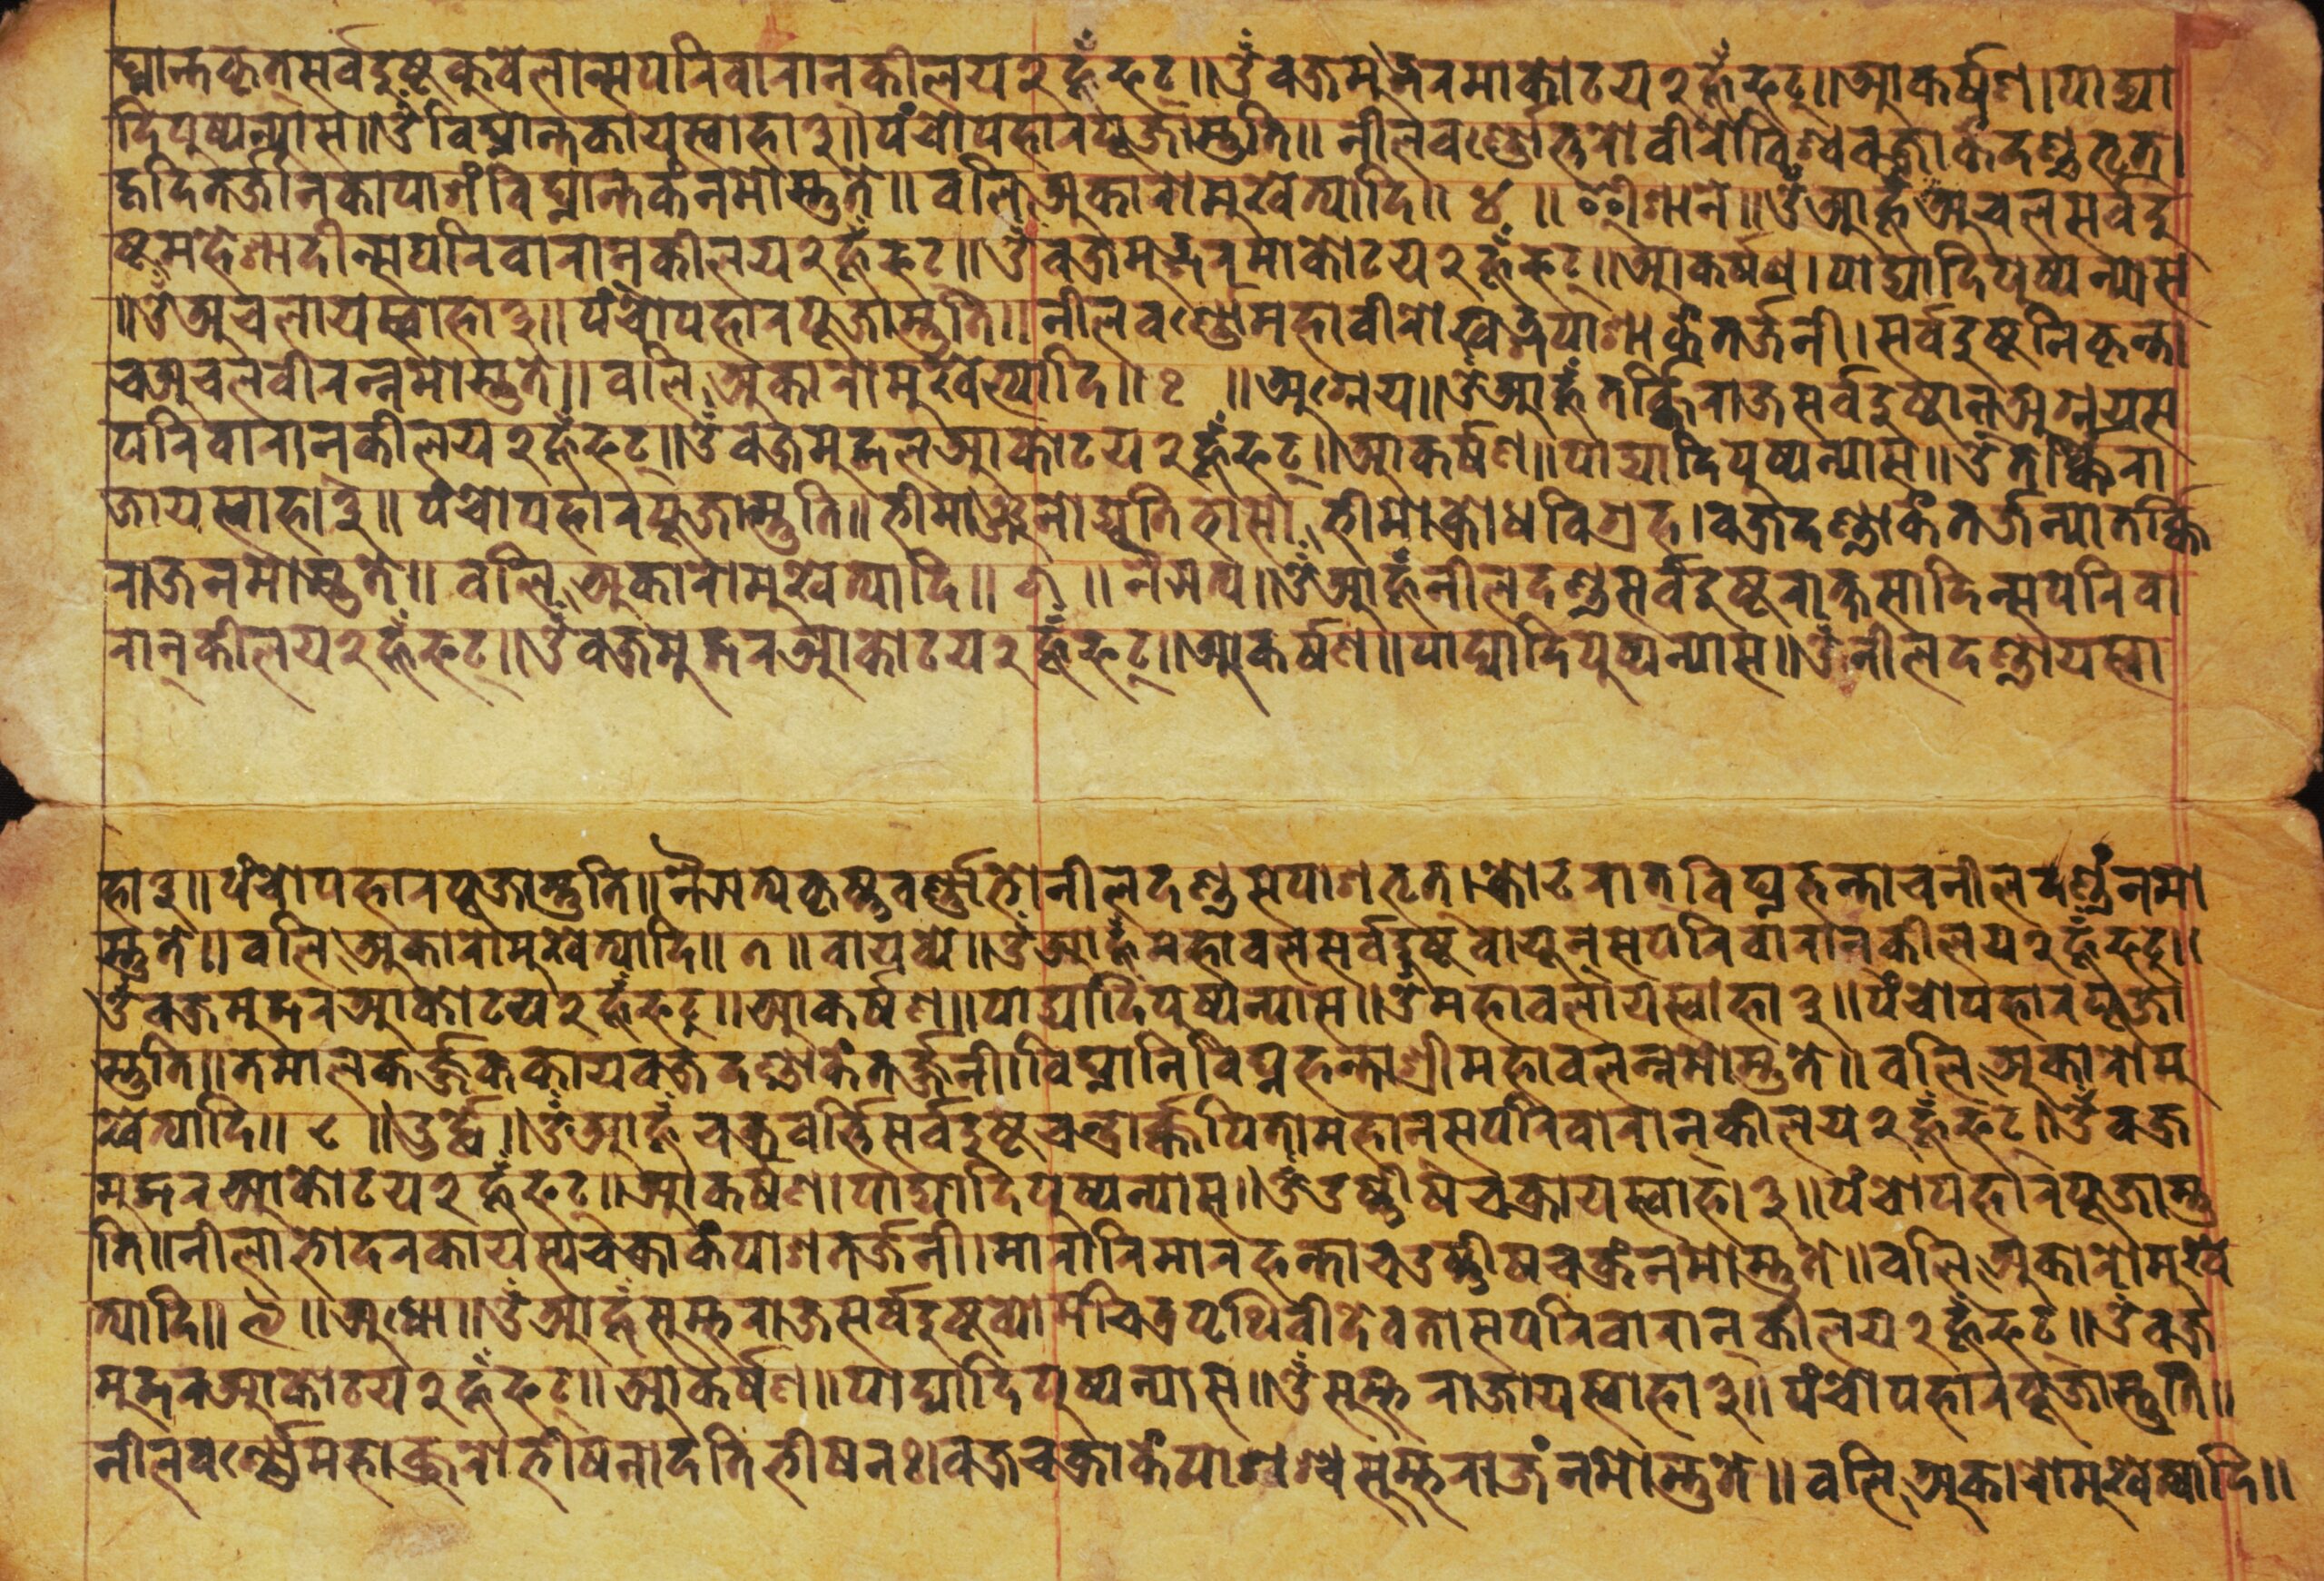 घ्नान्तकृत्सर्वदुष्टकुवेलान्सपरिवारान्कीलय२हूँफट्॥ॐवज्रमुद्गरमाकोटय२हूँफट्॥आकर्षण।पाद्या
दिपुष्पन्यास॥ॐविघ्नान्तकायस्वाहा३॥पंचोपहारपूजास्तुति॥नीलवर्ण्णोत्करोवीरोविश्ववज्रार्कदण्डभृत्।
हृदितर्जनिकापाशंविघ्नान्तकंनमोस्तुते॥वलि,अकारोमुखेत्यादि॥४॥ईशाने॥ॐआहूँअचलसर्वदु
ष्टमहेशादीन्सपरिवारान्कीलय२हूँफट्॥ॐवज्रमुद्गरमाकोटय२हूँफट्॥आकर्षण।पाद्यादिपुष्पन्यास
॥ॐअचलायस्वाहा३॥पंचोपहारपूजास्तुति॥नीलवर्ण्णोमहावीरोखड्गपाशाकंतर्जनी।सर्वदुष्टनिकृन्त
चअचलवीरन्नमोस्तुते॥वलि,अकारोमुखेत्यादि॥५॥अग्नेय॥ॐआहूँतर्क्किराजसर्वदुष्टान्अग्नयस
परिवारान्कीलय२हूँफट्॥ॐवज्रमुद्गलआकोटय२हूँफट्॥आकर्षण॥पाद्यादिपुष्पन्यास॥ॐतर्क्किरा
जायस्वाहा३॥पंचोपहारपूजास्तुति॥भीमाञ्जनोद्युतिभासो,भीमोक्रोधविग्रह।वज्रदण्डाकंतर्जन्यातर्क्कि
राजनमोस्तुते॥वलि,अकारोमुखेत्यादि॥६॥नैऋत्य॥ॐआहूँनीलदण्डसर्वदुष्टराक्षसादिन्सपरिवा
रान्कीलय२हूँफट्॥ॐवज्रमुद्गरआकोटय२हूँफट्॥आकर्षण॥पाद्यादिपुष्पन्यास॥ॐनीलदण्डायस्वा
हा३॥पंचोपहारपूजास्तुति॥नैऋत्यकृष्णवर्ण्णाभोनीलदण्डसपाशभृत्।क्रोटरातविघ्नहन्ताचनीलदण्डंनमो
स्तुते॥वलि,अकारोमुखेत्यादि॥७॥वायव्ये॥ॐआहूँमहावलसर्वदुष्टवायून्सपरिवारान्कीलय२हूँफट्॥
ॐवज्रमुद्गरआकोटय२हूँफट्॥आकर्षण॥पाद्यादिपुष्पन्यास॥ॐमहावलायस्वाहा३॥पंचोपहारपूजा
स्तुति॥तमालकर्ज्जककायवज्रदण्डाकंतर्ज्जनी।विघ्नानिविघ्नहन्ताश्रीमहावलन्नमोस्तुते॥वलि,अकारोमु
खेत्यादि॥८॥उर्द्ध॥ॐआहूँचक्रवर्त्तिसर्वदुष्टचन्द्रार्क्कपितामहान्सपरिवारान्कीलय२हूँफट्॥ॐवज्र
मुद्गरआकोटय२हूँफट्॥आकर्षण।पाद्यादिपुष्पन्यास॥ॐउष्णीषचक्रायस्वाहा३॥पंचोपहारपूजास्तु
ति॥नीलाभोदनकायस्यचक्राकंपाशतर्जनी।मारारिमारहन्ताचउष्णीषचक्रंनमोस्तुते॥वलि,अकारोमुखे
त्यादि॥९॥अधो॥ॐआहूँसुम्भराजसर्वदुष्टव्योमचित्रपृथिवीदेवतासपरिवारान्कीलय२हूँफट्॥ॐवज्र
मुद्गरआकोटय२हूँफट्॥आकर्षण॥पाद्यादिपुष्पन्यास॥ॐसुम्भराजायस्वाहा३॥पंचोपहारपूजास्तुति॥
नीलवर्ण्णोमहाक्रुरोभीषनादतिभीषनः।वज्रचक्राकंपाशश्चसुम्भराजंनमोस्तुते॥वलि,अकारोमुखेत्यादि॥